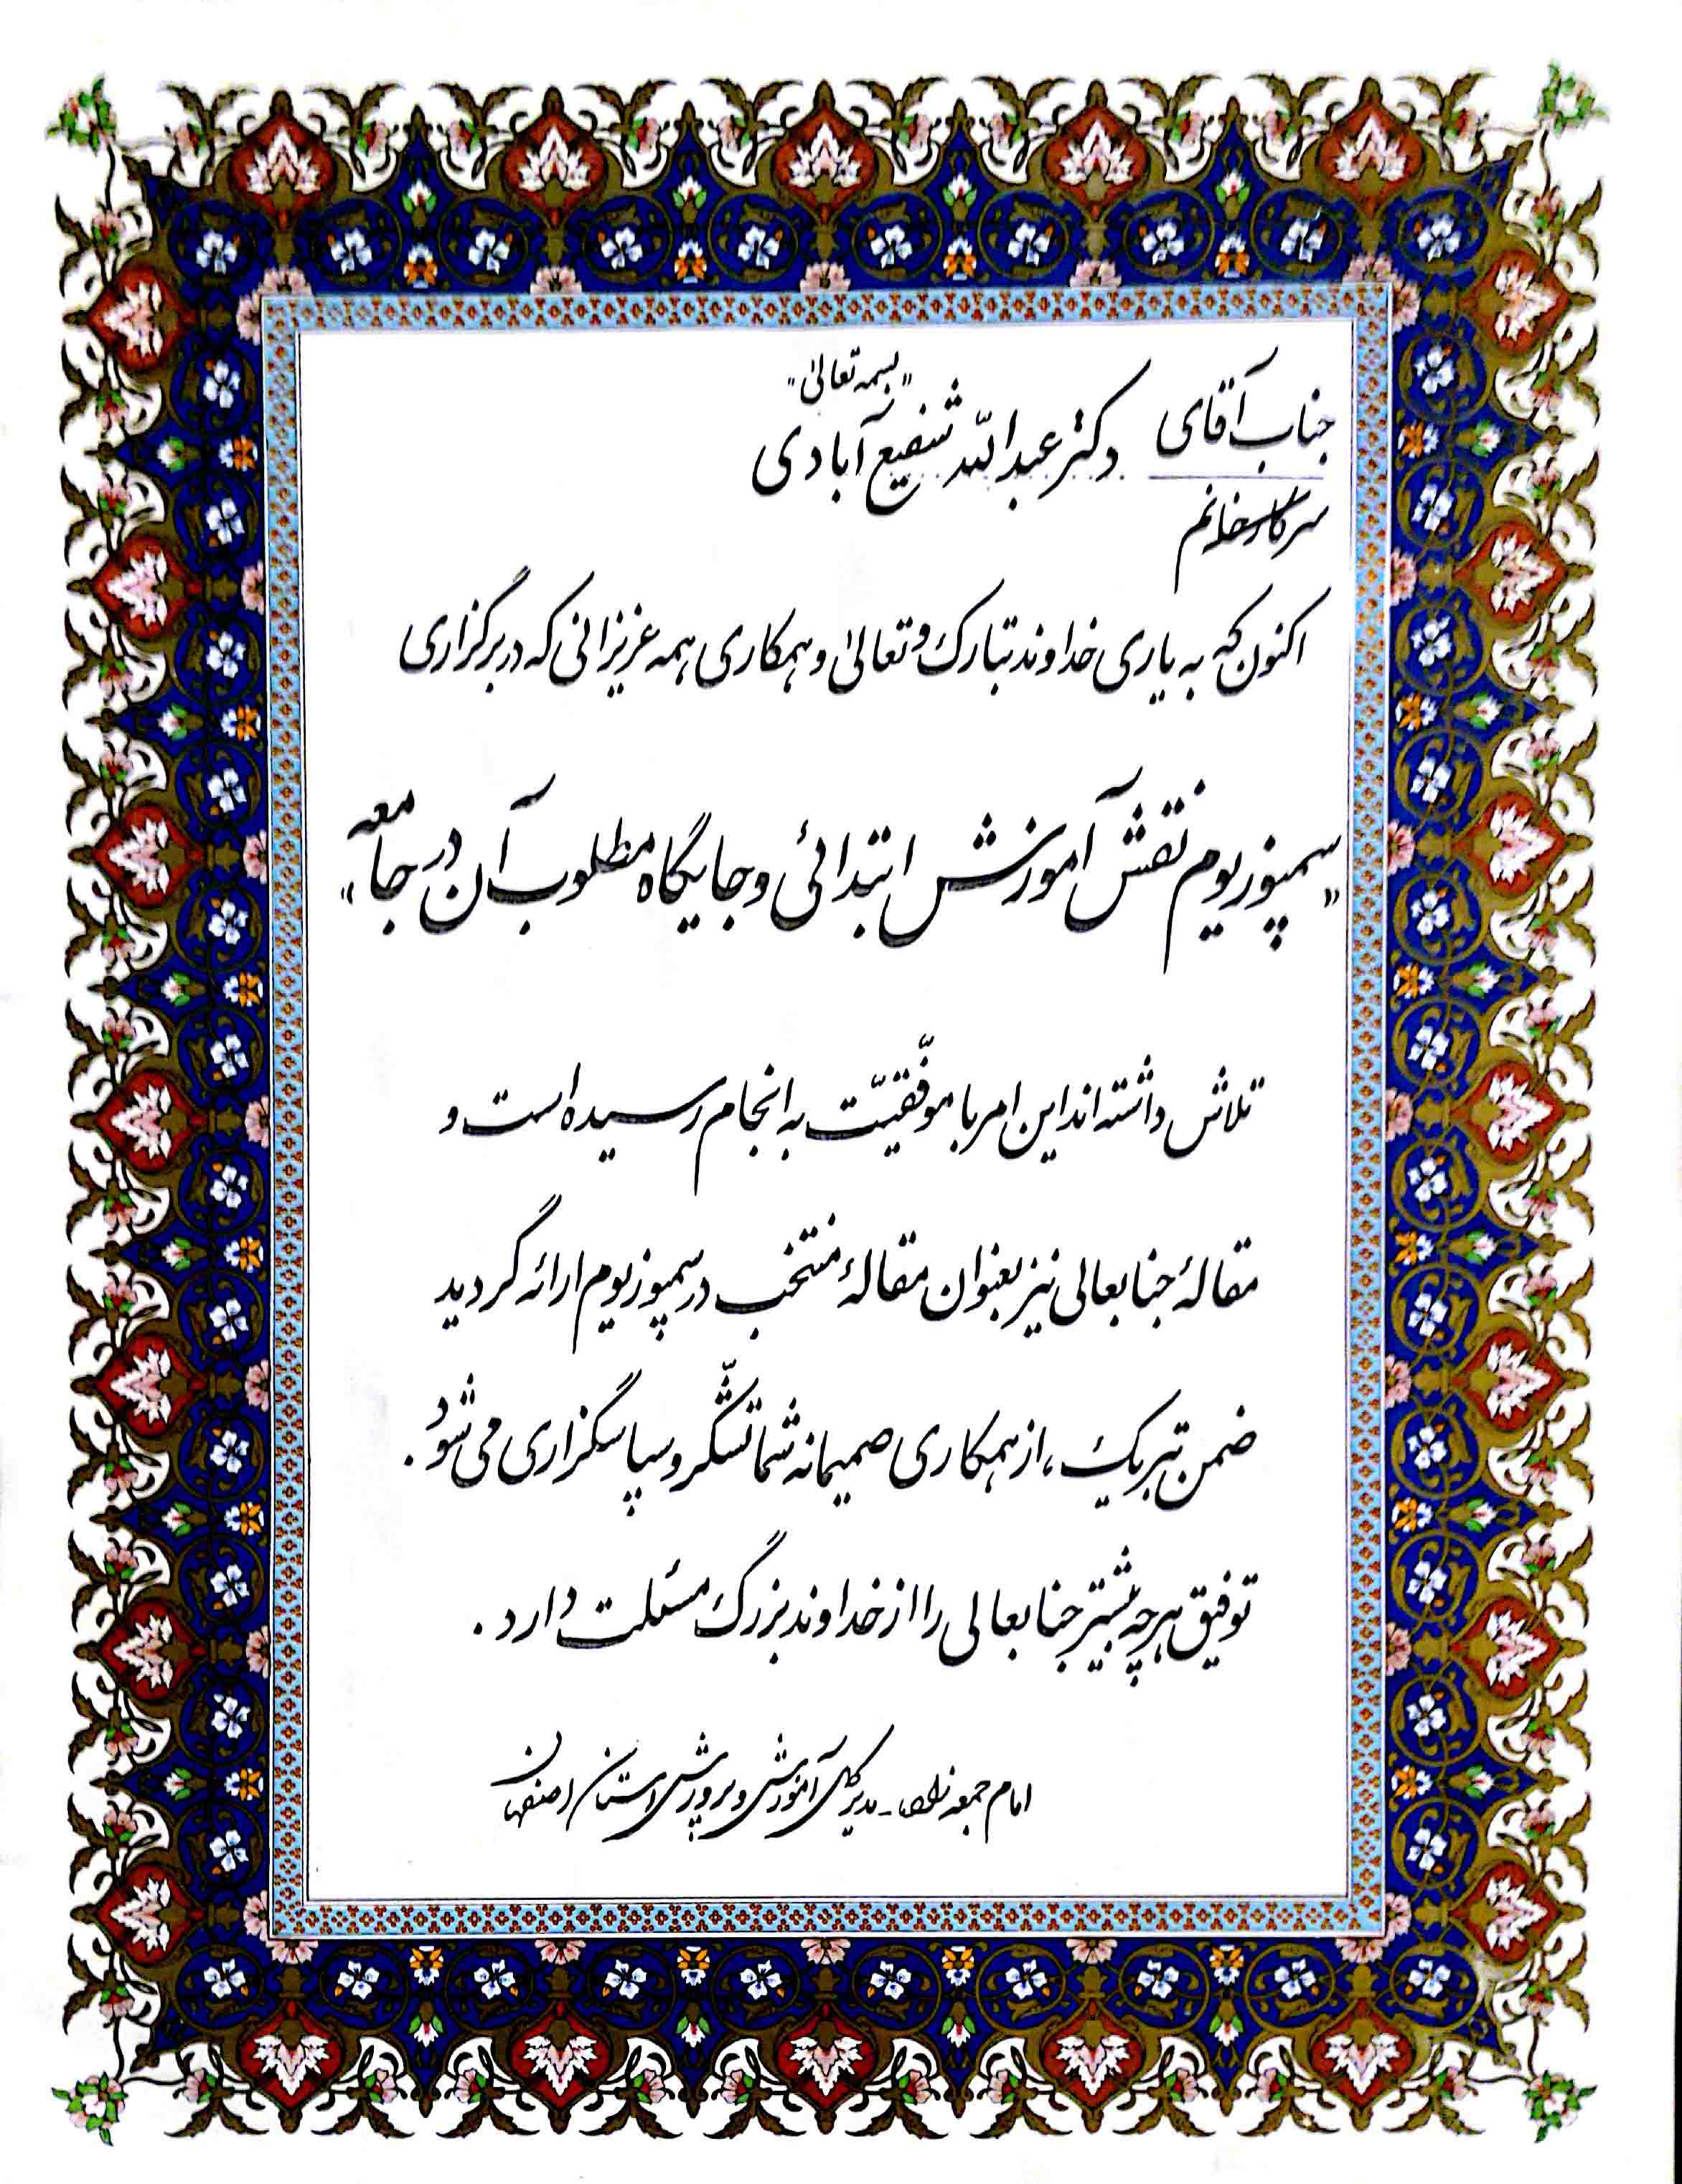 "بسمه تعالیٰ"
جناب آقای دکتر عبدالله شفیع آبادی
سرکار خانم
اکنون که به یاری خداوند تبارک و تعالیٰ و همکاری همه عزیزانی که در برگزاری
"سمپوزیوم نقش آموزش ابتدائی و جایگاه مطلوب آن در جامعه"
تلاش داشته اند این امر با موفّقیّت به انجام رسیده است و
مقالهٔ جنابعالی نیز بعنوان مقالهٔ منتخب در سمپوزیوم ارائه گردید
ضمن تبریک، از همکاری صمیمانه شما تشکّر و سپاسگزاری می شود.
توفیق هرچه بیشتر جنابعالی را از خداوند بزرگ مسئلت دارد.
امام جمعه زاده - مدیر کل آموزش و پرورش استان اصفهان